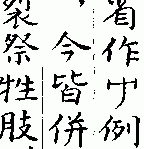 省作例
今皆併
裂祭牲肢